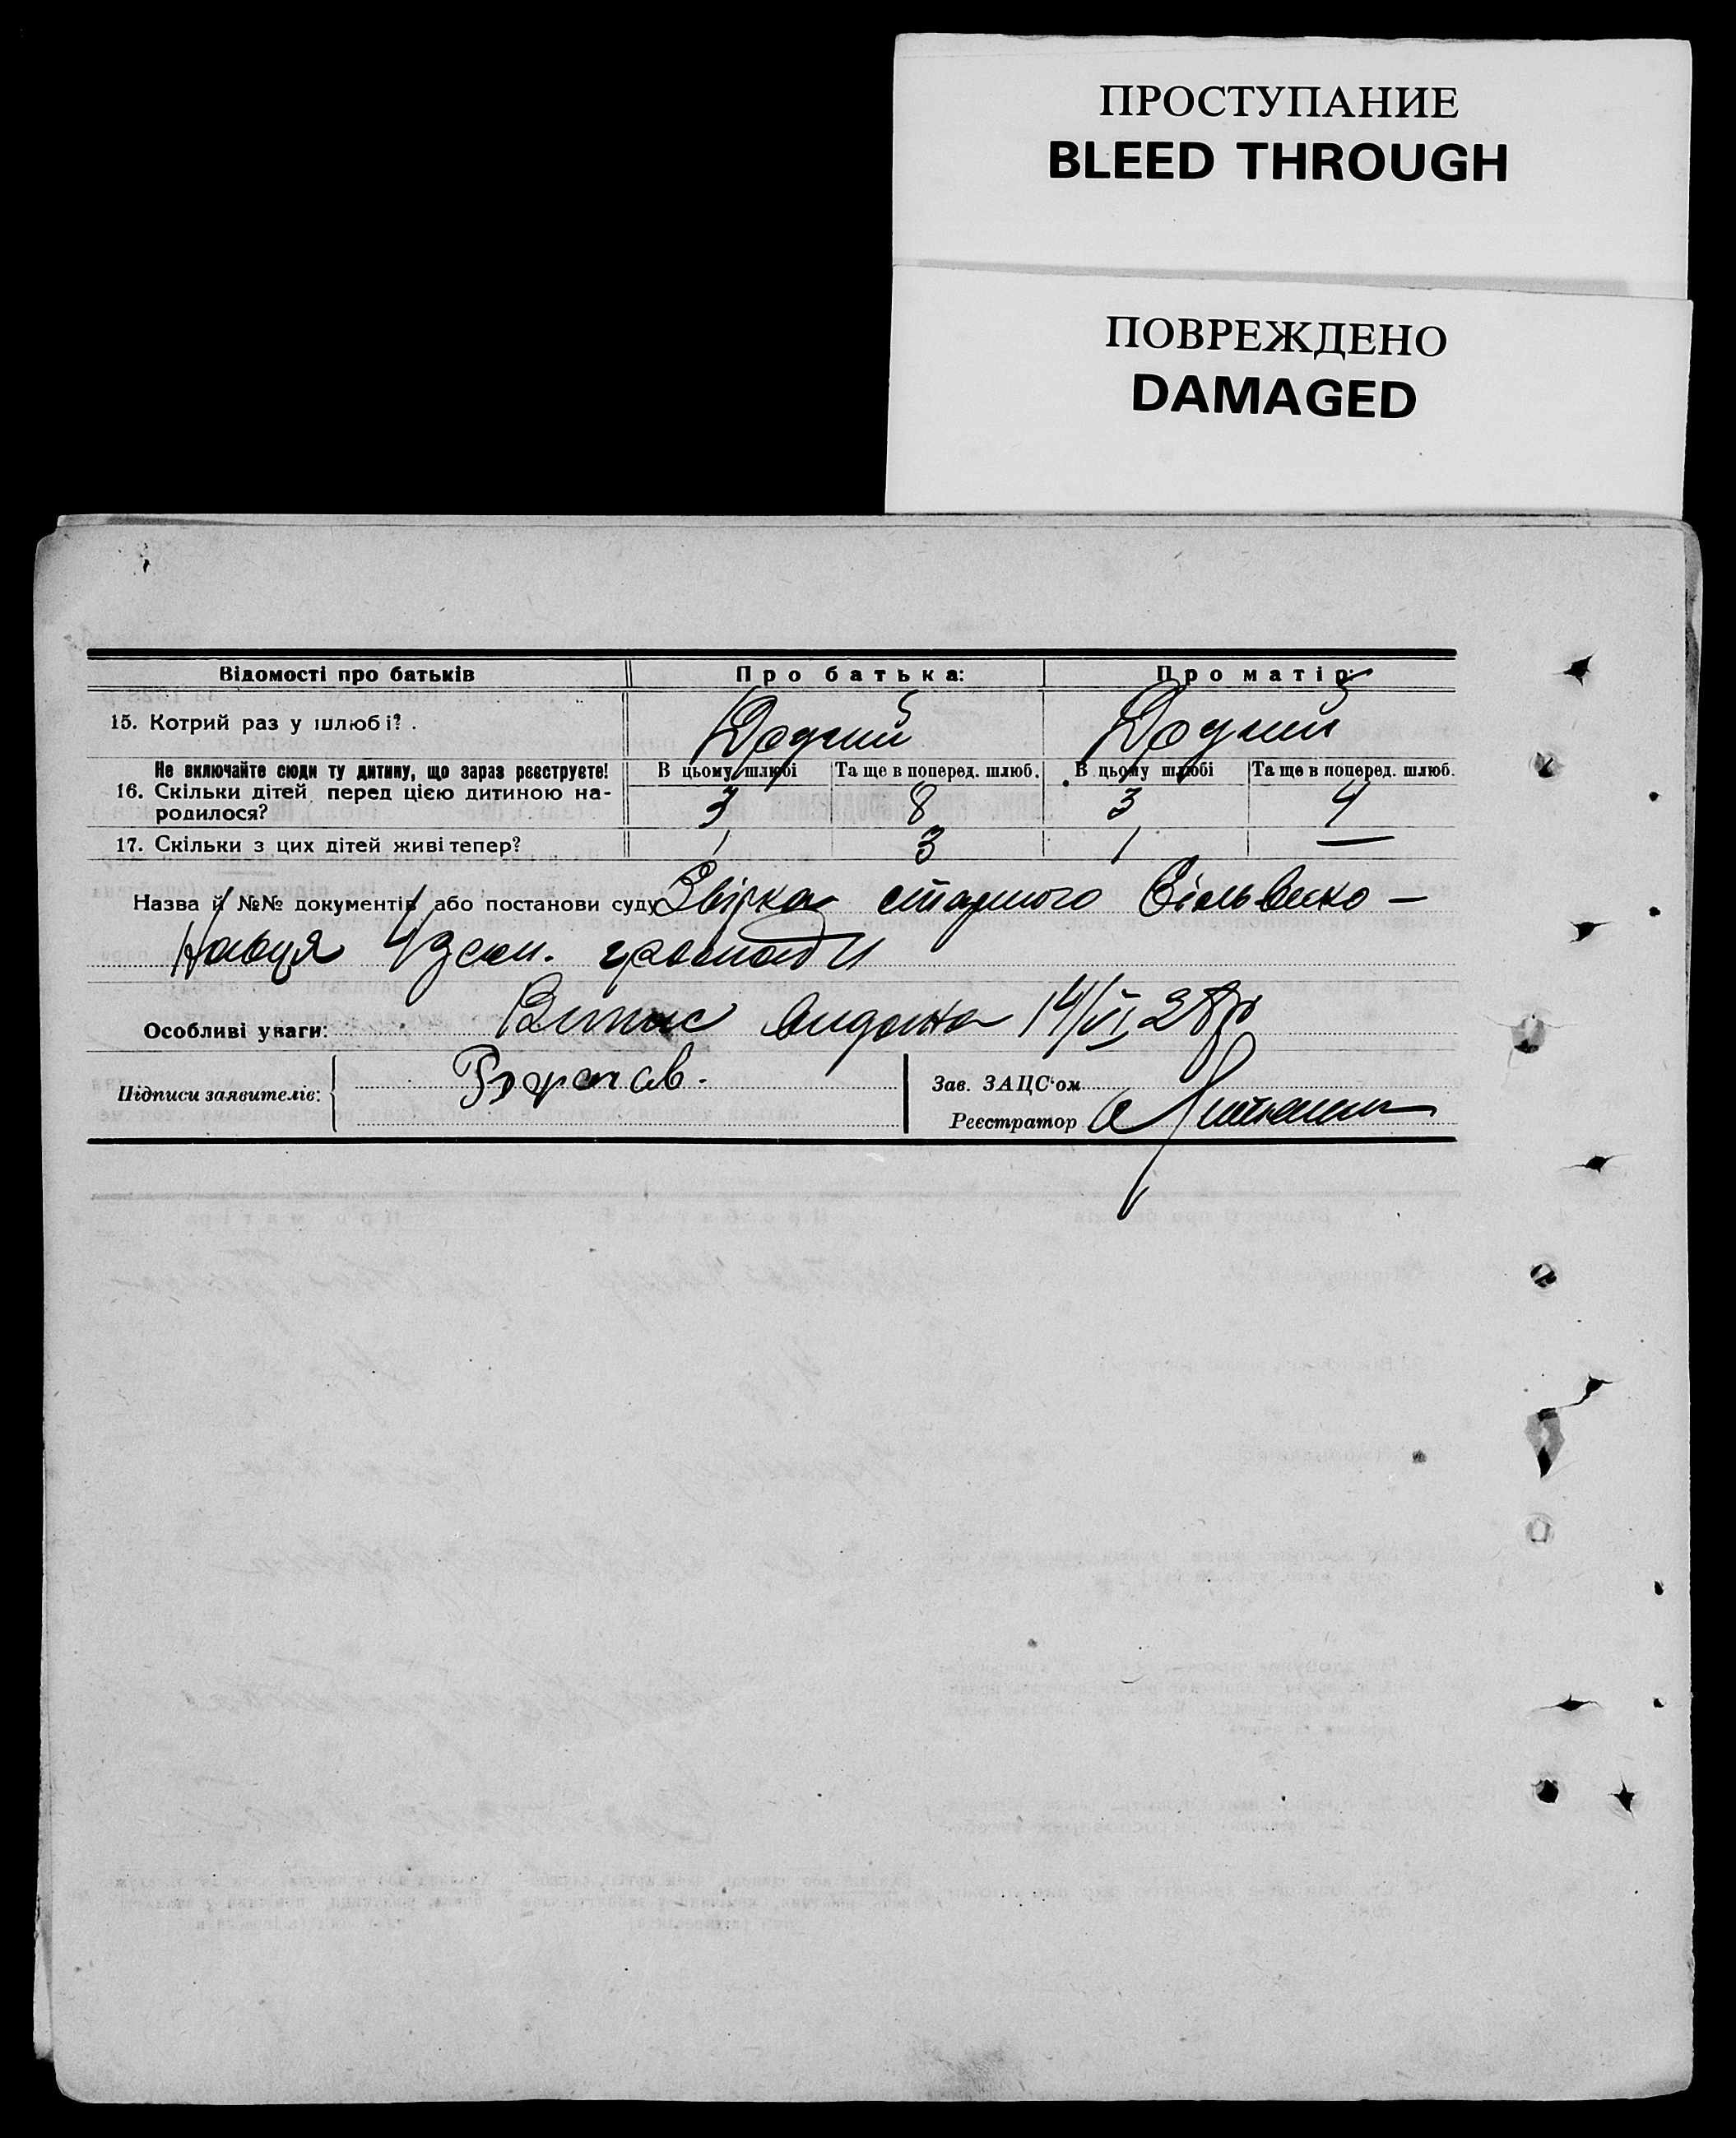 ПРОСТУПАНИЕ
BLEED THROUGH
ПОВРЕЖДЕНО
DAMAGED
Відомості про батьків Про батька: Про матір:
15. Котрий раз у шлюбі? Другий Другий
Не включайте сюди ту дитину, що зараз реєструєте! В цьому шлюбі Та ще в поперед. шлюб. В цьому шлюбі Та ще в поперед. шлюб.
16. Скільки дітей перед цією дитиною на- 3 8 3 4
родилося?
17. Скільки з цих дітей живі тепер? 1 3 1 —
Назва й №№ документів або постанови суду Звірка старшого
громади
Особливі уваги: Випис видана 14/VI 28 р
Підписи заявителів:
Зав. ЗАЦС'ом
Реєстратор